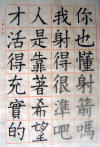 你也懂射箭嗎
我射得很準吧
人是靠著希望
才活得充實的